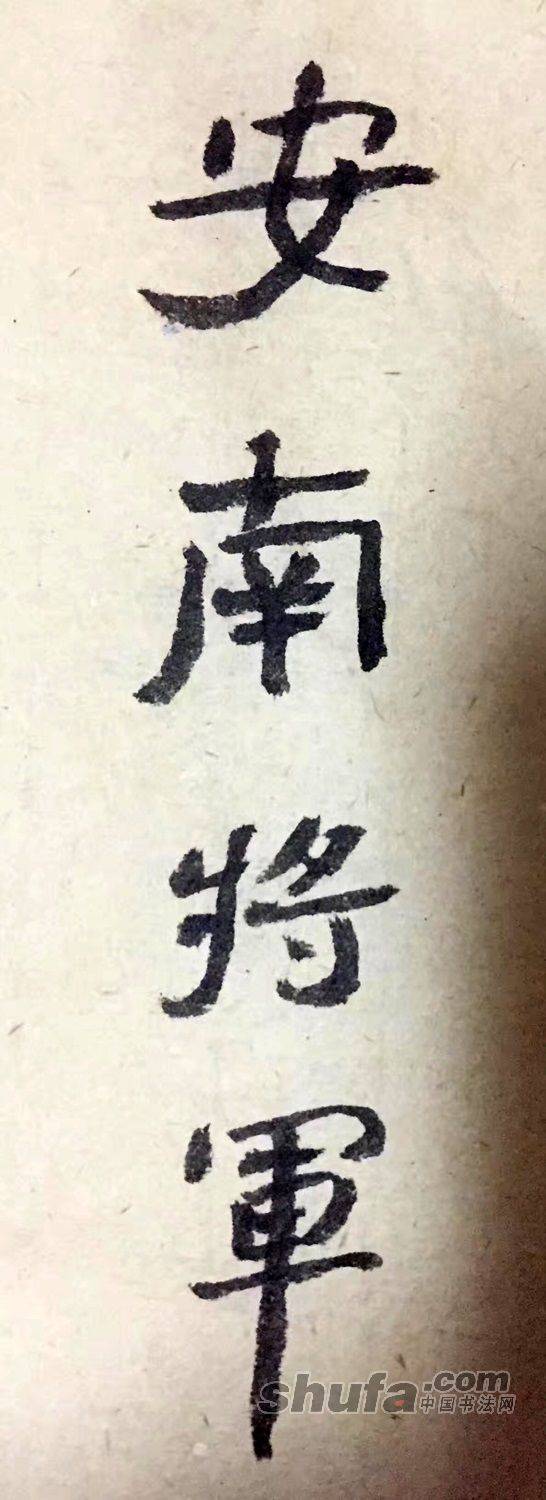 安南将軍
shufa.com
中国书法网